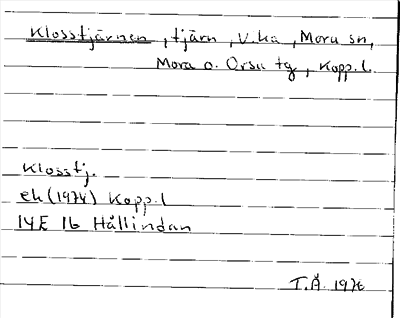 Klosstjärnen, tjärn, V.ka, Mora sn,
Mora o. Orsa tg, Kopp.l.
Klosstj.
ek (1974) Kopp.l
14E 1b Hållindan
T.Å. 1976